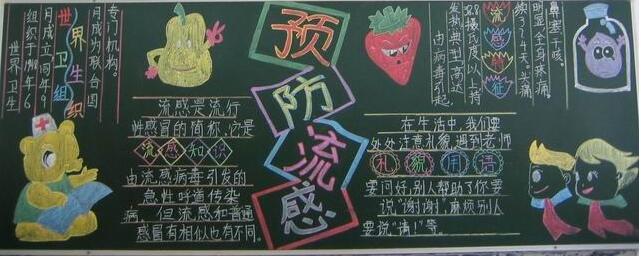 世界卫生
组织于1948年6
月成立,同年9
世界卫生组织
月成为联合国
专门机构。
预
防
流
感
由病毒引起,
发热典型高达
39摄氏度以上持
流感特征
续3~4天。头痛
明显全身疼痛
鼻塞干咳。
流感是流行
性感冒的简称,它是
流感知识
由流感病毒引发的
急性呼道传染
病,但流感和普通
感冒有相似也有不同。
在生活中,我们要
处处注意礼貌,遇到老师
礼貌用语
要问好,别人帮助了你要
说"谢谢"麻烦别人
要说"请!"等。